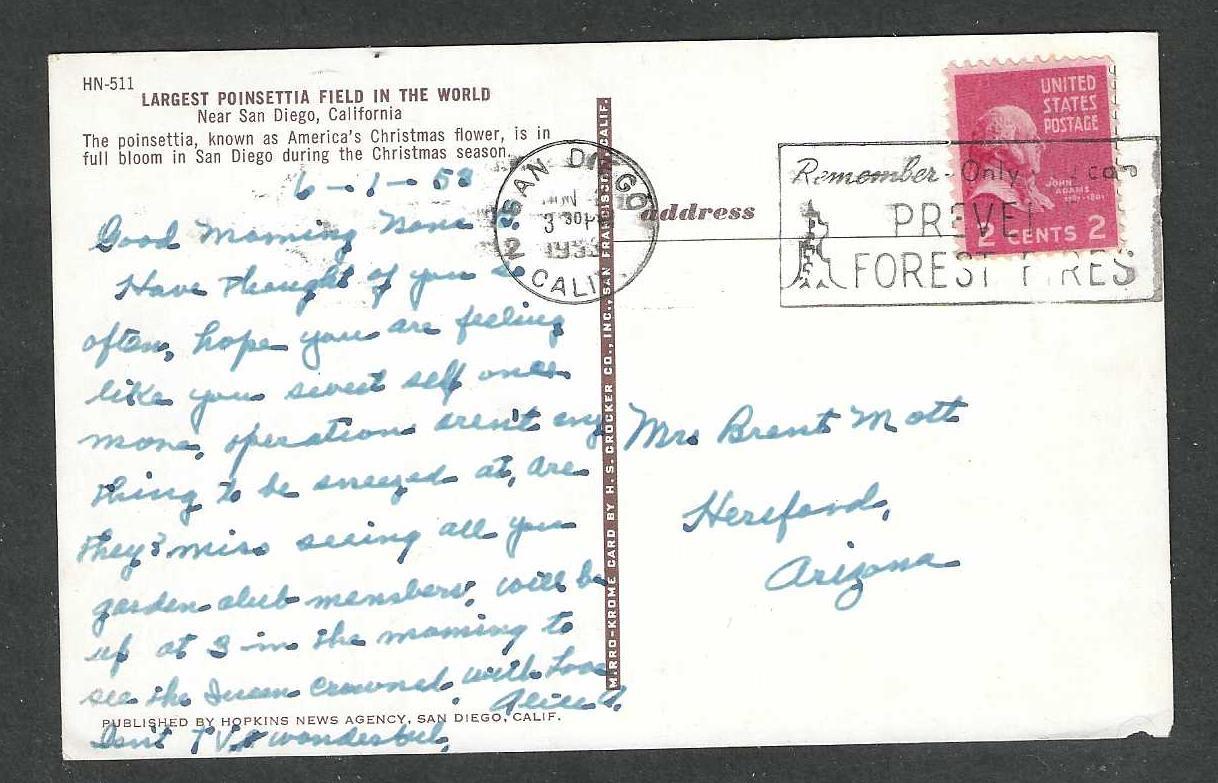 HN-511
LARGEST POINSETTIA FIELD IN THE WORLD
Near San Diego, California
The poinsettia, known as America's Christmas flower, is in
full bloom in San Diego during the Christmas season.
6-1-53
Good Morning
Have thought of you so
often, hope you are feeling
like you sweet self once
more, operations aren't any
thing to be sneezed at, are
they? miss seeing all you
garden club members, will be
up at 3 in the morning to
see the Queen crowned. with Love
Alice A.
PUBLISHED BY HOPKINS NEWS AGENCY, SAN DIEGO, CALIF.
Isn't T.V. wonderful,
MIRRO-KROME CARD BY H. S. CROCKER CO., INC., SAN FRANCISCO, CALIF.
SAN DIEGO
JUN
3 30 PM
1953
2
CALIF.
address
Remember - Only can
PREVENT
FOREST FIRES
UNITED
STATES
POSTAGE
JOHN
ADAMS
1797-1801
2 CENTS 2
Mrs Brent Mott
Hereford,
Arizona